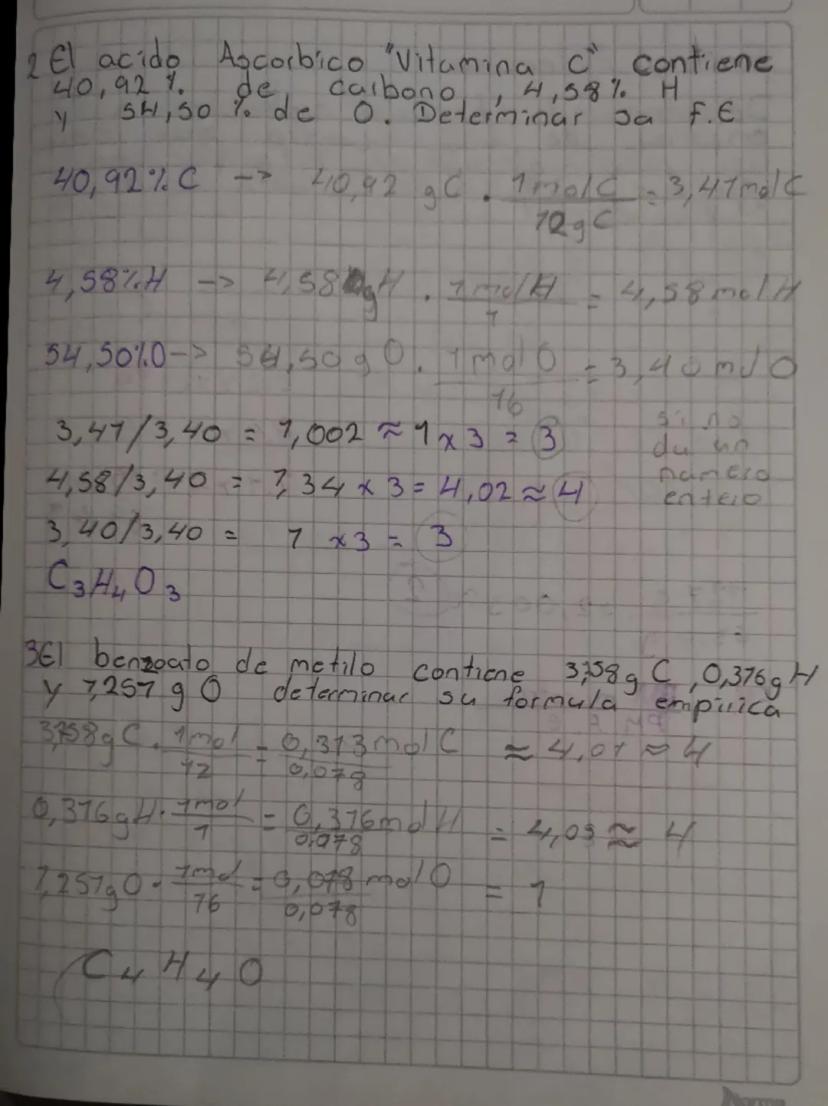 2 El acido Ascorbico "Vitamina C" contiene
40,92 % de carbono, 4,58% H
y 54,50 % de O. Determinar sa F.E
40,92%C -> 40,92 gC . 1molC/12gC = 3,41molC
4,58%H -> 4,58 gH . 1molH/1 = 4,58molH
54,50%O -> 54,50gO . 1molO/16 = 3,40molO
3,41/3,40 = 1,002 ≈ 1 x 3 = 3
si no
da un
numero
entero
4,58/3,40 = 1,34 x 3 = 4,02 ≈ 4
3,40/3,40 = 1 x3 = 3
C3H4O3
3El benzoato de metilo contiene 3,758g C, 0,376gH
y 1,251gO determinar su formula empirica
3,758gC . 1mol/12 = 0,313molC/0,078 ≈ 4,01 ≈ 4
0,376gH . 1mol/1 = 0,376molH/0,078 = 4,03 ≈ 4
1,251gO . 1mol/16 = 0,078molO/0,078 = 1
C4H4O
Norma